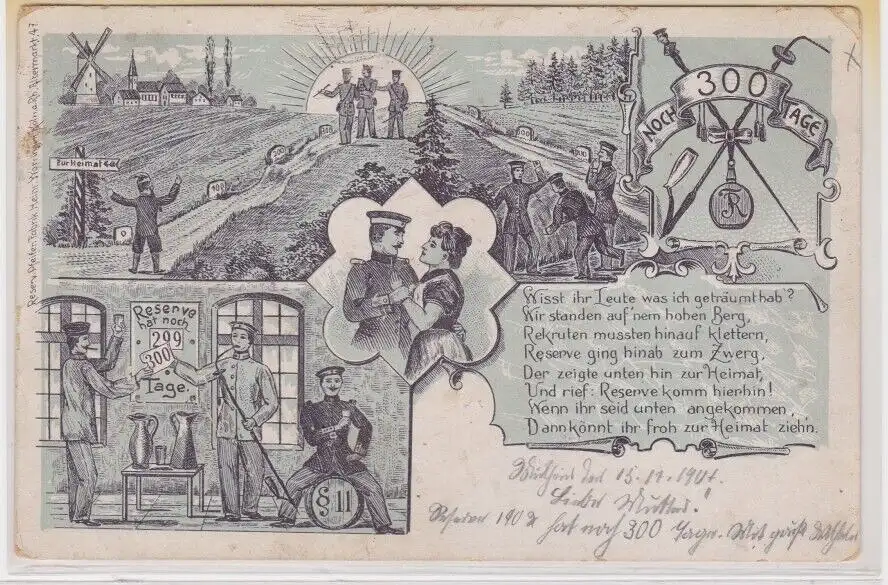 Zur Heimat
0
100
200
300
NOCH
300
TAGE
R
Reserve
hat noch
299
300
Tage.
§ 11
Wisst ihr Leute was ich geträumt hab'?
Wir standen auf 'nem hohen Berg,
Rekruten mussten hinauf klettern,
Reserve ging hinab zum Zwerg,
Der zeigte unten hin zur Heimat,
Und rief: Reserve komm hierhin!
Wenn ihr seid unten angekommen,
Dann könnt ihr froh zur Heimat ziehn.
den 15.11.1901.
Liebe Mutter!
Reserve 190 hat noch 300 Tage. Mit